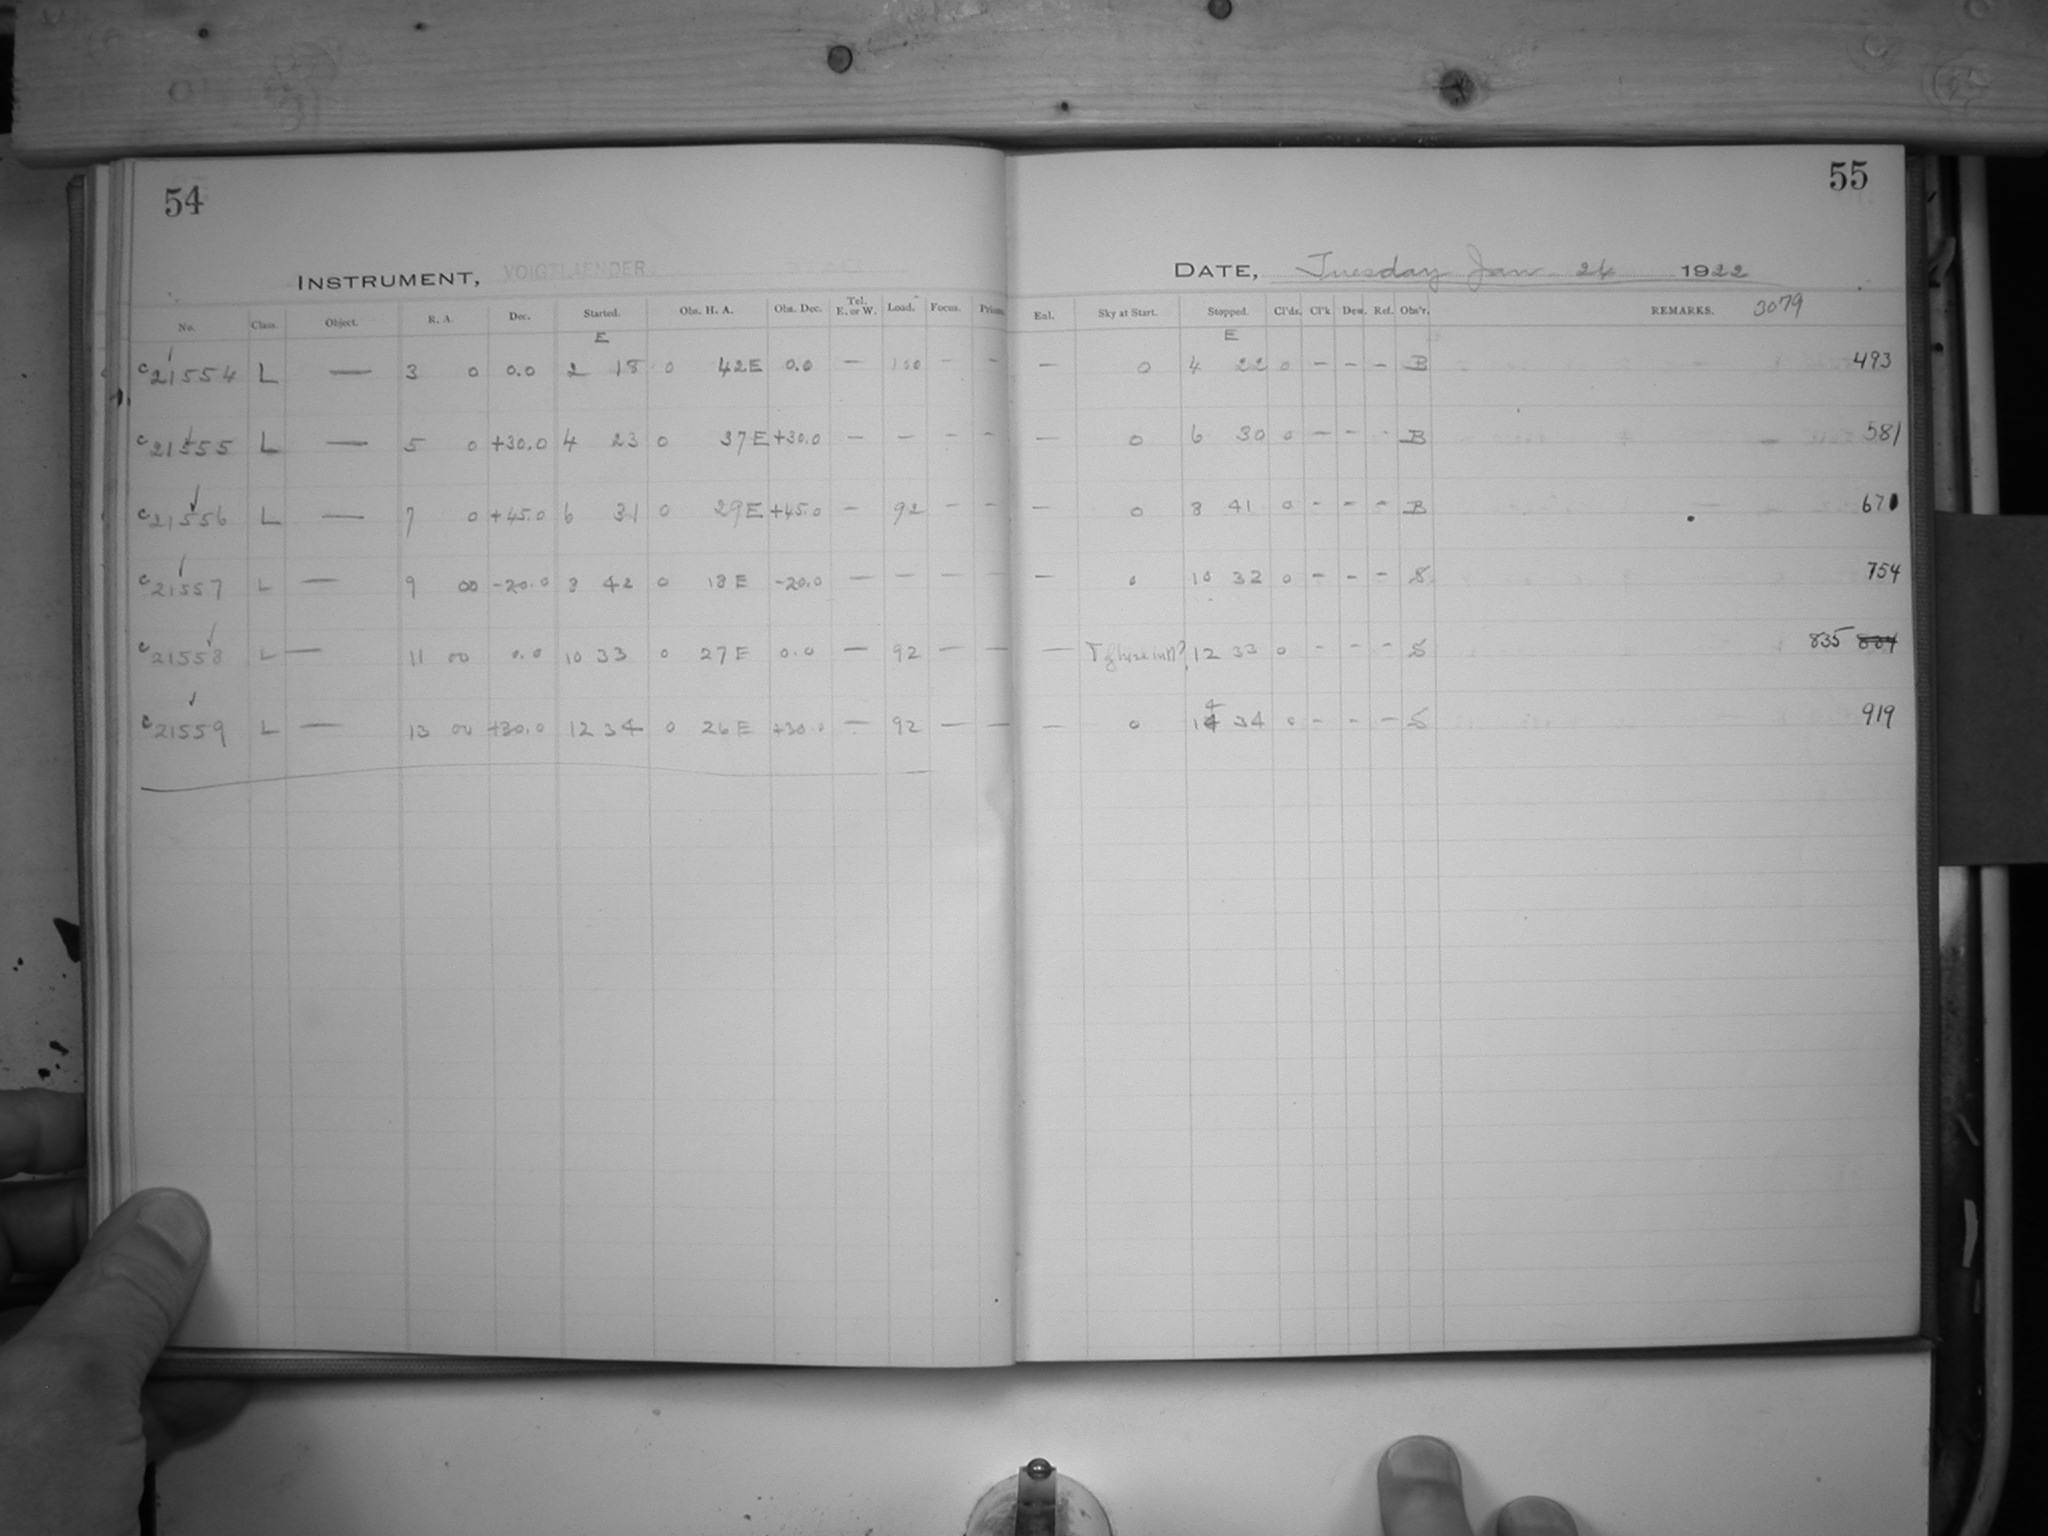 54
INSTRUMENT, VOIGTLAENDER.
No. Class. Object. R. A. Dec. Started. Obs. H. A. Obs. Dec. Tel. E. or W. Load. Focus. Prism
E
c21554 L — 3 0 0.0 2 18 0 42E 0.0 — 100 - -
c21555 L — 5 0 +30.0 4 23 0 37E +30.0 — - - -
c21556 L — 7 0 +45.0 6 31 0 29E +45.0 — 92 - -
c21557 L — 9 00 -20.0 8 42 0 18E -20.0 — - - -
c21558 L — 11 00 0.0 10 33 0 27E 0.0 — 92 - -
c21559 L — 13 00 +30.0 12 34 0 26E +30.0 — 92 - -
55
DATE, Tuesday Jan. 24 1922
Enl. Sky at Start. Stopped. Cl'ds. Cl'k Dew. Ref. Obs'r. REMARKS. 3079
E
— 0 4 22 0 - - - B 493
— 0 6 30 0 - - - B 581
— 0 8 41 0 - - - B 671
— 0 10 32 0 - - - S 754
— 12 33 0 - - - S 835
— 0 14 34 0 - - - S 919